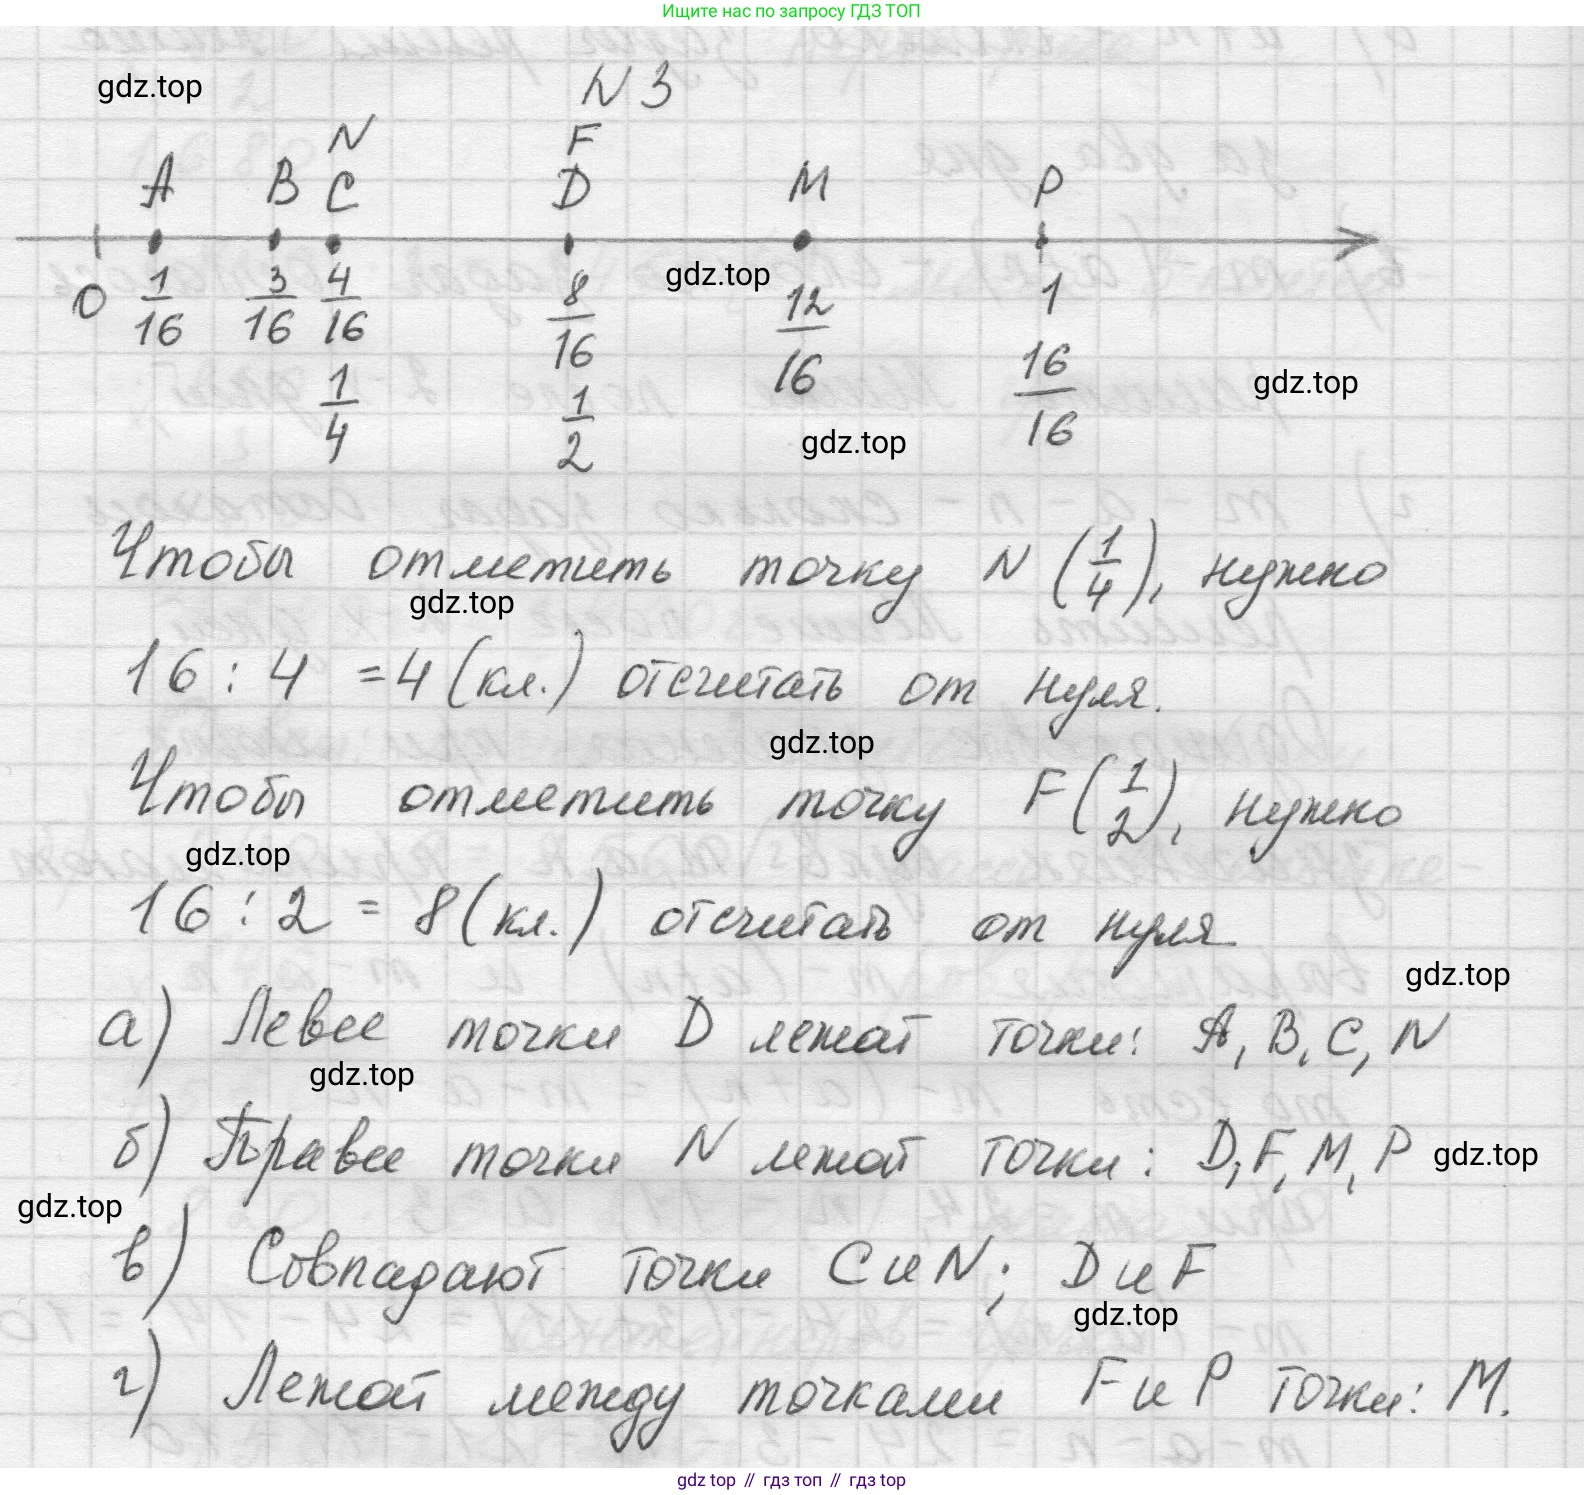 Ищите нас по запросу ГДЗ ТОП
gdz.top
N 3
N F
A B C D M P
gdz.top
0 1/16 3/16 4/16 8/16 12/16 1
1/4 1/2 16/16
gdz.top
gdz.top
Чтобы отметить точку N (1/4), нужно
gdz.top
16 : 4 = 4 (кл.) отсчитать от нуля.
gdz.top
Чтобы отметить точку F (1/2), нужно
gdz.top
16 : 2 = 8 (кл.) отсчитать от нуля
gdz.top
а) Левее точки D лежат точки: A, B, C, N
gdz.top
б) Правее точки N лежат точки: D, F, M, P
gdz.top
gdz.top
в) Совпадают точки C и N; D и F
gdz.top
г) Лежат между точками F и P точки: M.
gdz top // гдз топ // гдз top